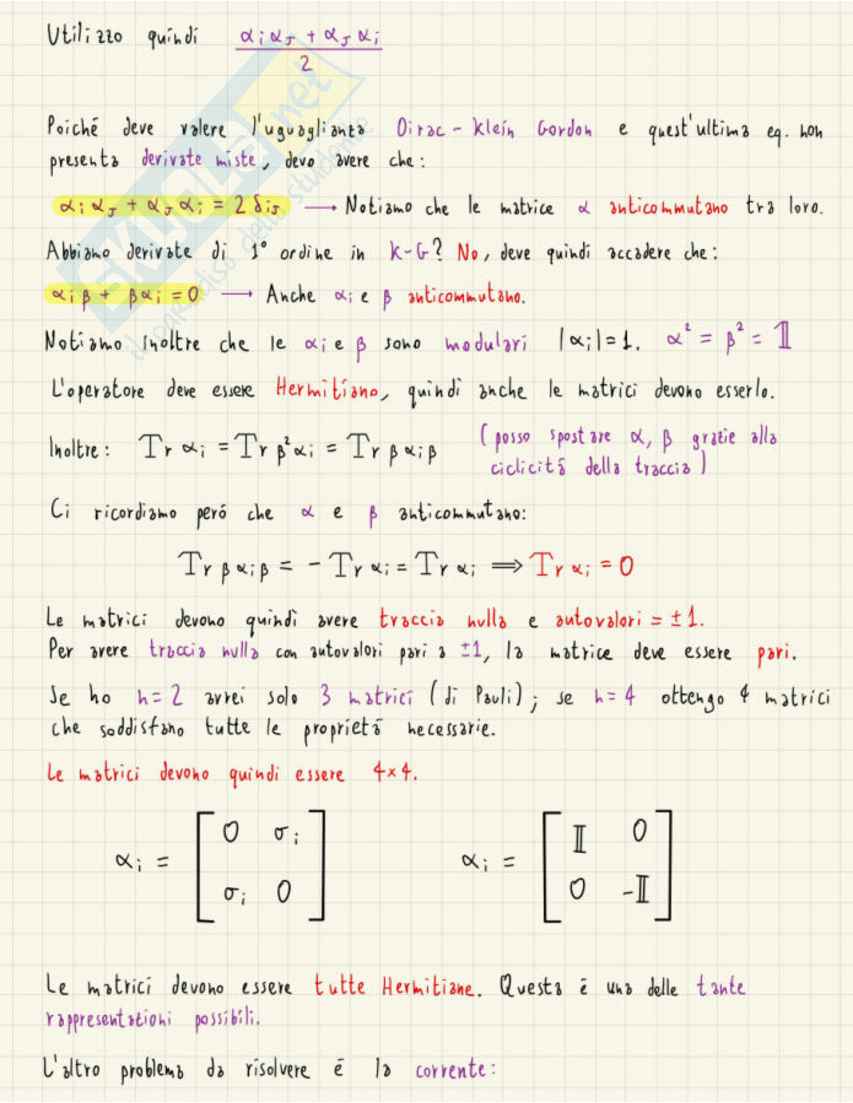 Utilizzo quindi αiαJ + αJαi / 2
Poiché deve valere l'uguaglianza Dirac - Klein Gordon e quest'ultima eq. non
presenta derivate miste, devo avere che:
αiαJ + αJαi = 2δiJ → Notiamo che le matrice α anticommutano tra loro.
Abbiamo derivate di 1° ordine in K-G? No, deve quindi accadere che:
αiβ + βαi = 0 → Anche αi e β anticommutano.
Notiamo inoltre che le αi e β sono modulari |αi| = 1. α² = β² = 𝟙
L'operatore deve essere Hermitiano, quindi anche le matrici devono esserlo.
Inoltre: Tr αi = Tr β²αi = Tr βαiβ (posso spostare α, β grazie alla
ciclicitá della traccia)
Ci ricordiamo peró che α e β anticommutano:
Tr βαiβ = - Tr αi = Tr αi ⟹ Tr αi = 0
Le matrici devono quindi avere traccia nulla e autovalori = ±1.
Per avere traccia nulla con autovalori pari a ±1, la matrice deve essere pari.
Se ho n=2 avrei solo 3 matrici (di Pauli); se n=4 ottengo 4 matrici
che soddisfano tutte le proprietá necessarie.
Le matrici devono quindi essere 4×4.
αi = [ 0 σi ; σi 0 ] αi = [ 𝕀 0 ; 0 -𝕀 ]
Le matrici devono essere tutte Hermitiane. Questa é una delle tante
rappresentazioni possibili.
L'altro problema da risolvere é la corrente:
skuola.net
il paradiso dello studente